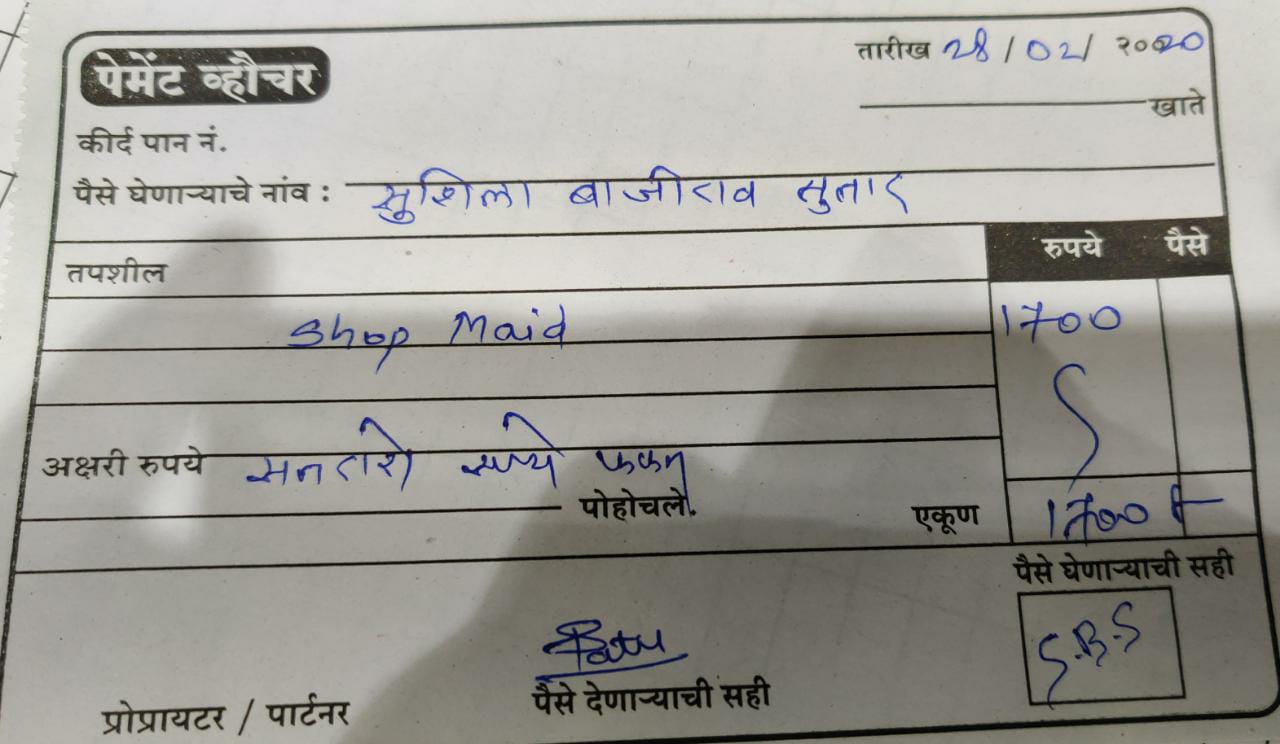 पेमेंट व्हौचर
तारीख 28/02/ २०2020
खाते
कीर्द पान नं.
पैसे घेणाऱ्याचे नांव : सुशिला बाजीराव सुतार
तपशील रुपये पैसे
Shop Maid 1700
अक्षरी रुपये सतराशे रुपये फक्त
पोहोचले. एकूण 1700
पैसे घेणाऱ्याची सही
S.B.S
पैसे देणाऱ्याची सही
प्रोप्रायटर / पार्टनर